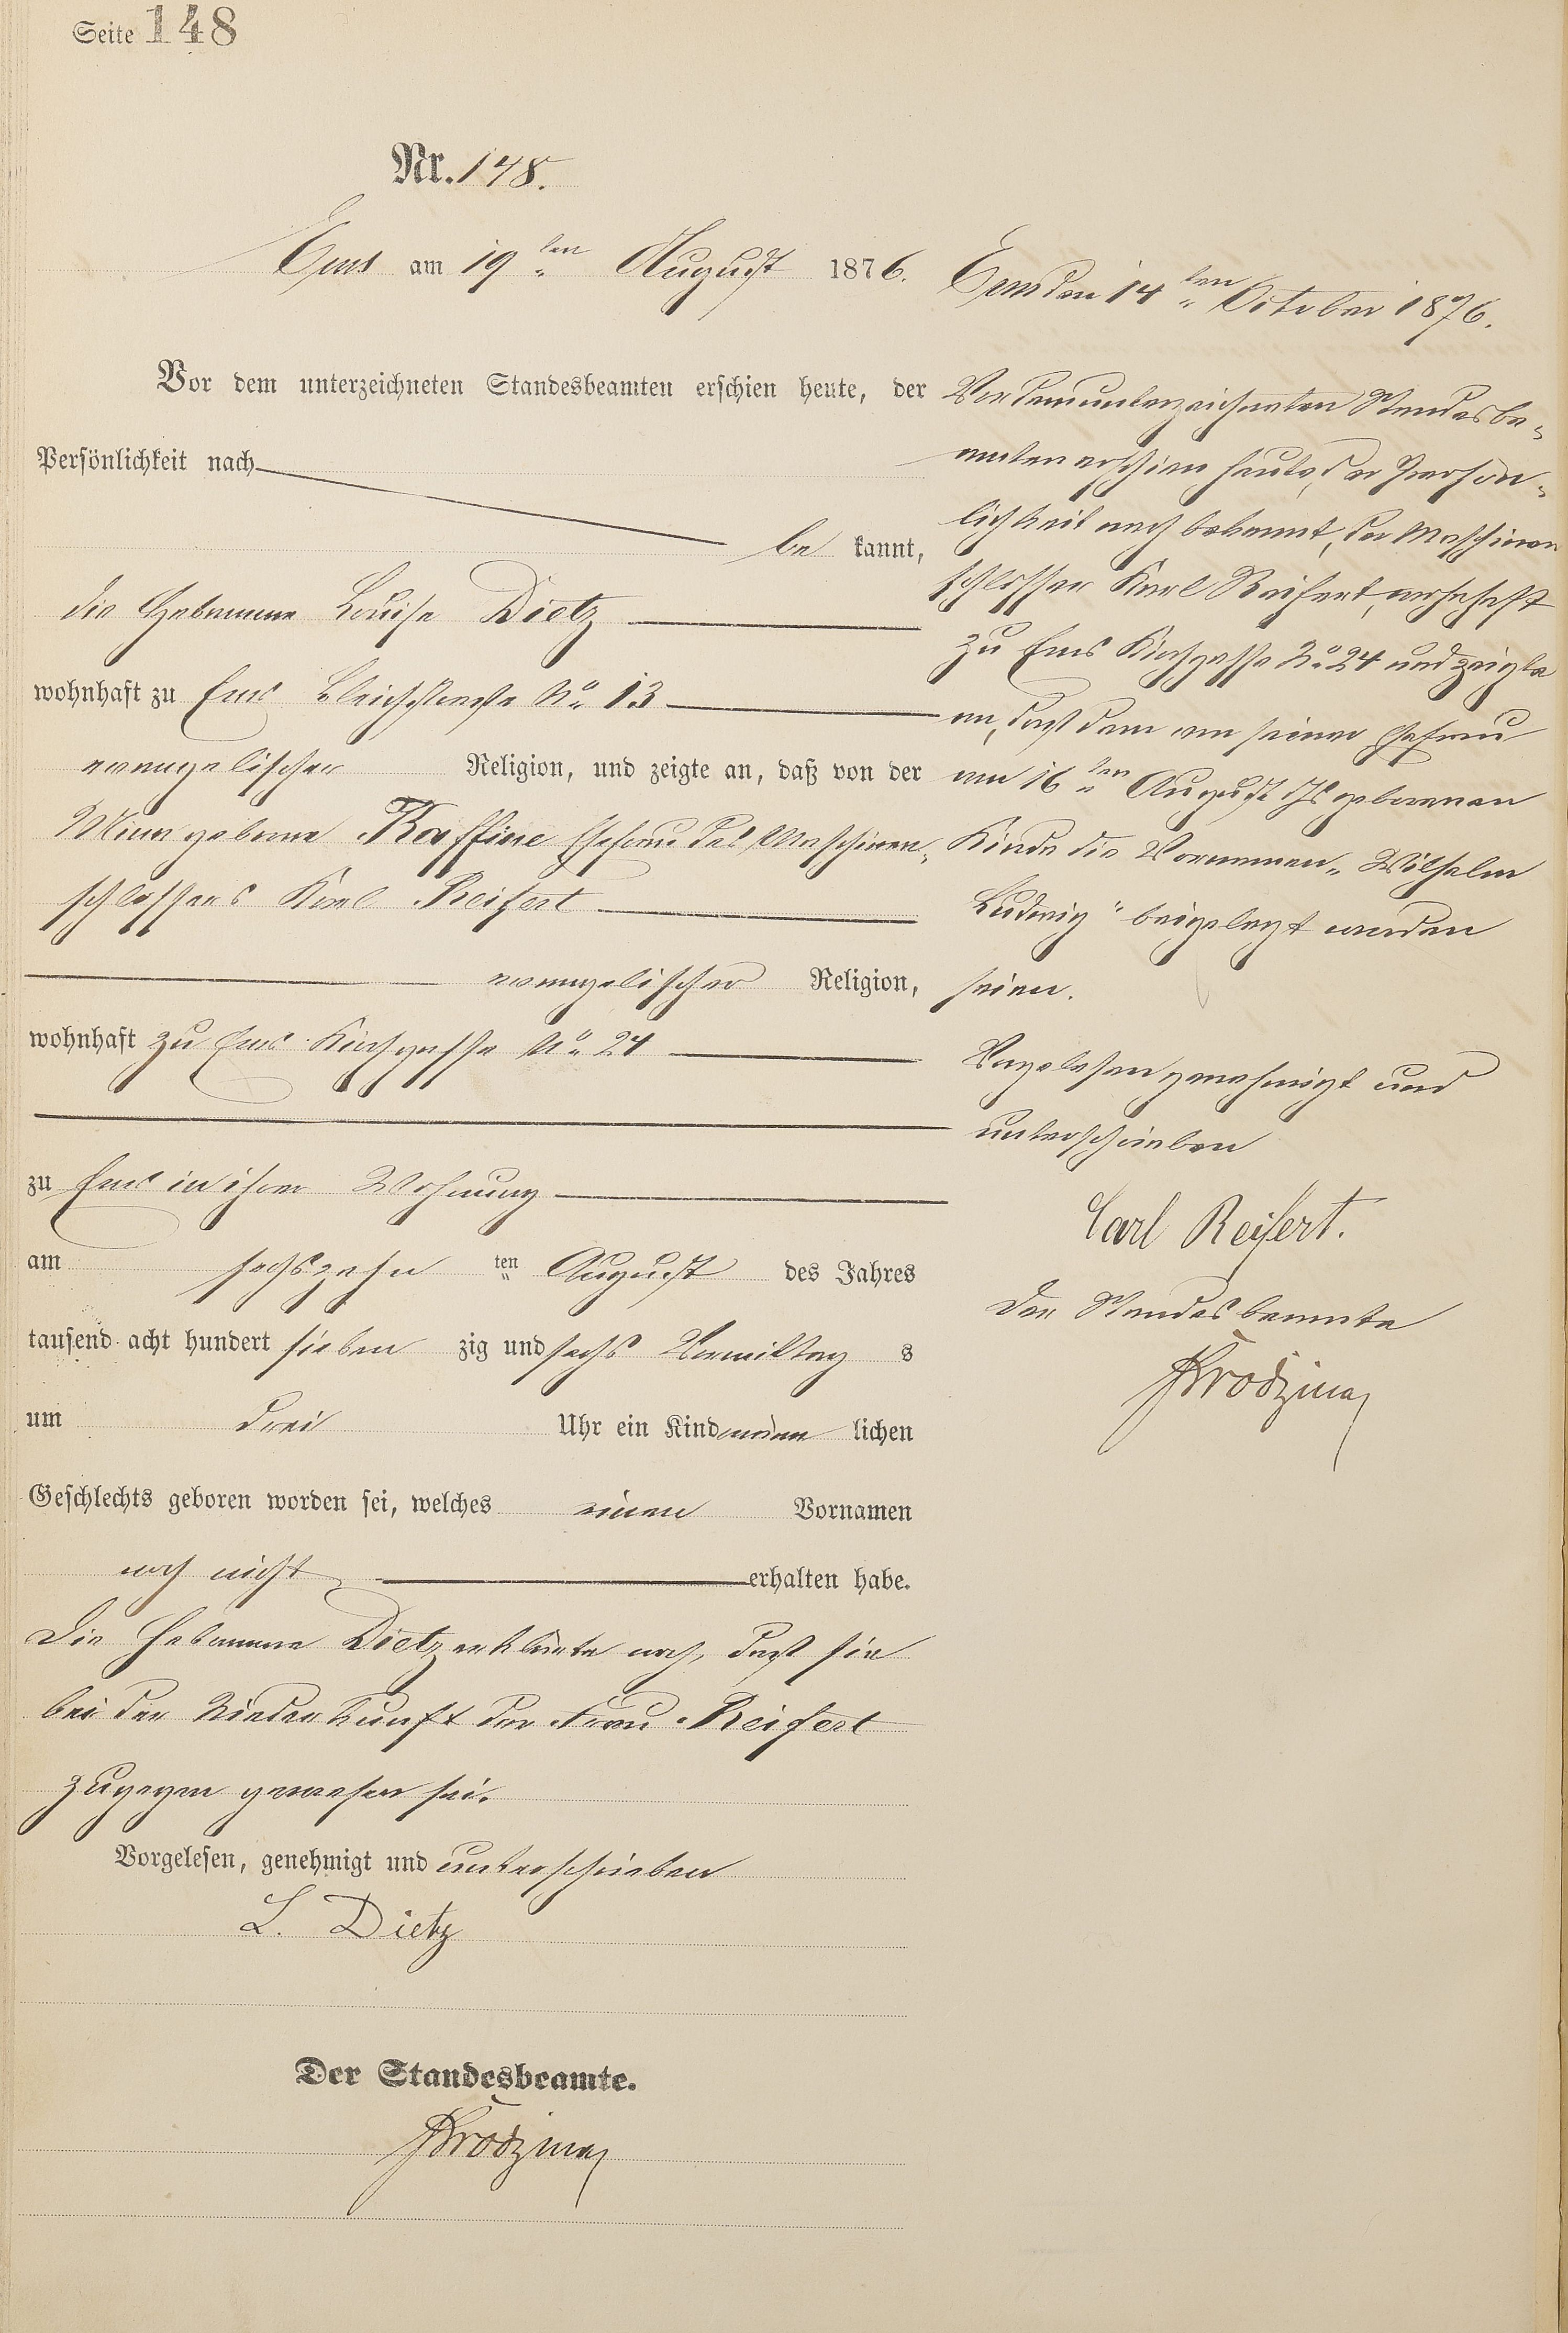 Seite 148
Nr. 148.
Ems am 19ten August 1876.
Vor dem unterzeichneten Standesbeamten erschien heute, der
Persönlichkeit nach
be kannt,
die Hebamme Louise Dietz
wohnhaft zu Ems Bleichstraße No 13
evangelischer Religion, und zeigte an, daß von der
geborne Ehefrau des Maschinen-
schlossers Karl Reifert
evangelischer Religion,
wohnhaft zu Ems Kirchgasse No 24
zu Ems in ihrer Wohnung
am sechszehn ten August des Jahres
tausend acht hundert sieben zig und sechs Vormittag s
um drei Uhr ein Kind männ lichen
Geschlechts geboren worden sei, welches einen Vornamen
noch nicht erhalten habe.
Die Hebamme Dietz erklärte noch, daß sie
bei der Niederkunft der Frau Reifert
zugegen gewesen sei.
Vorgelesen, genehmigt und unterschrieben
L. Dietz
Der Standesbeamte.
Ems den 14ten October 1876.
Vor dem unterzeichneten Standesbe-
amten erschien heute, der Persön-
lichkeit nach bekannt, der Maschinen
schlosser Karl Reifert, wohnhaft
zu Ems Kirchgasse No 24 und zeigte
an, daß dem von seiner Ehefrau
am 16ten August geborenen
Kinde die Vornamen „Wilhelm
Ludwig" beigelegt worden
seien.
Vorgelesen genehmigt und
unterschrieben
Carl Reifert.
Der Standesbeamte